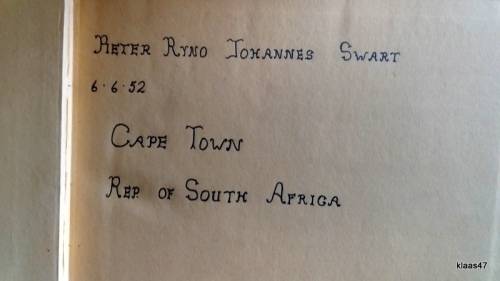 PETER RYNO JOHANNES SWART
6·6·52
CAPE TOWN
REP. OF SOUTH AFRICA
klaas47